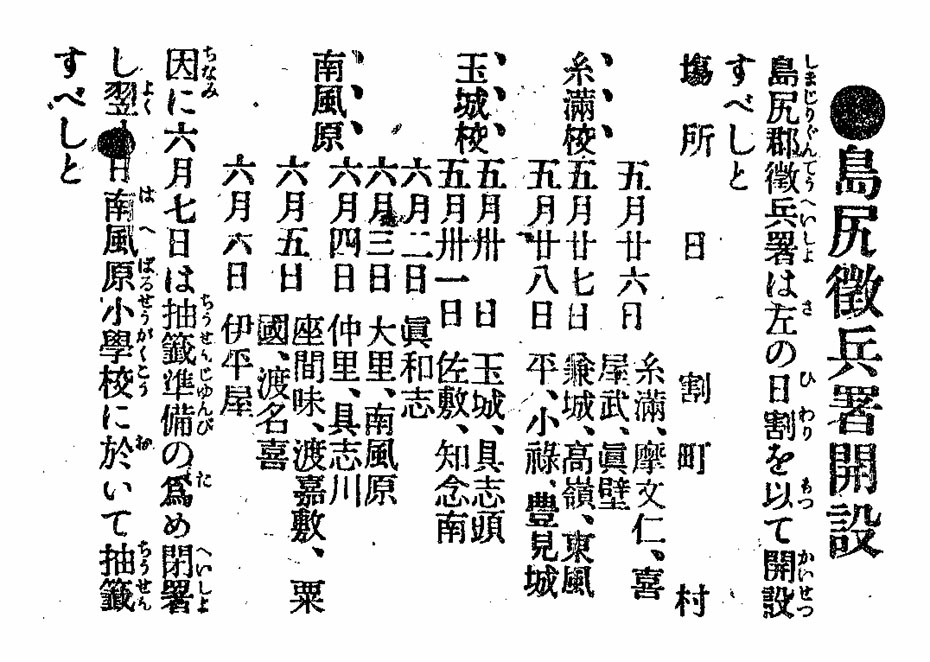 ●島尻徴兵署開設
島尻郡徴兵署は左の日割を以て開設
すべしと
塲所 日割 町村
糸滿校 五月廿六日 糸滿、摩文仁、喜
屋武、眞壁
五月廿七日 兼城、高嶺、東風
五月廿八日 平、小祿、豐見城
玉城校 五月卅日 玉城、具志頭
五月卅一日 佐敷、知念南
六月二日 眞和志
南風原 六月三日 大里、南風原
六月四日 仲里、具志川
六月五日 座間味、渡嘉敷、粟
國、渡名喜
六月六日 伊平屋
因に六月七日は抽籤準備の爲め閉署
し翌 日南風原小學校に於いて抽籤
すべしと